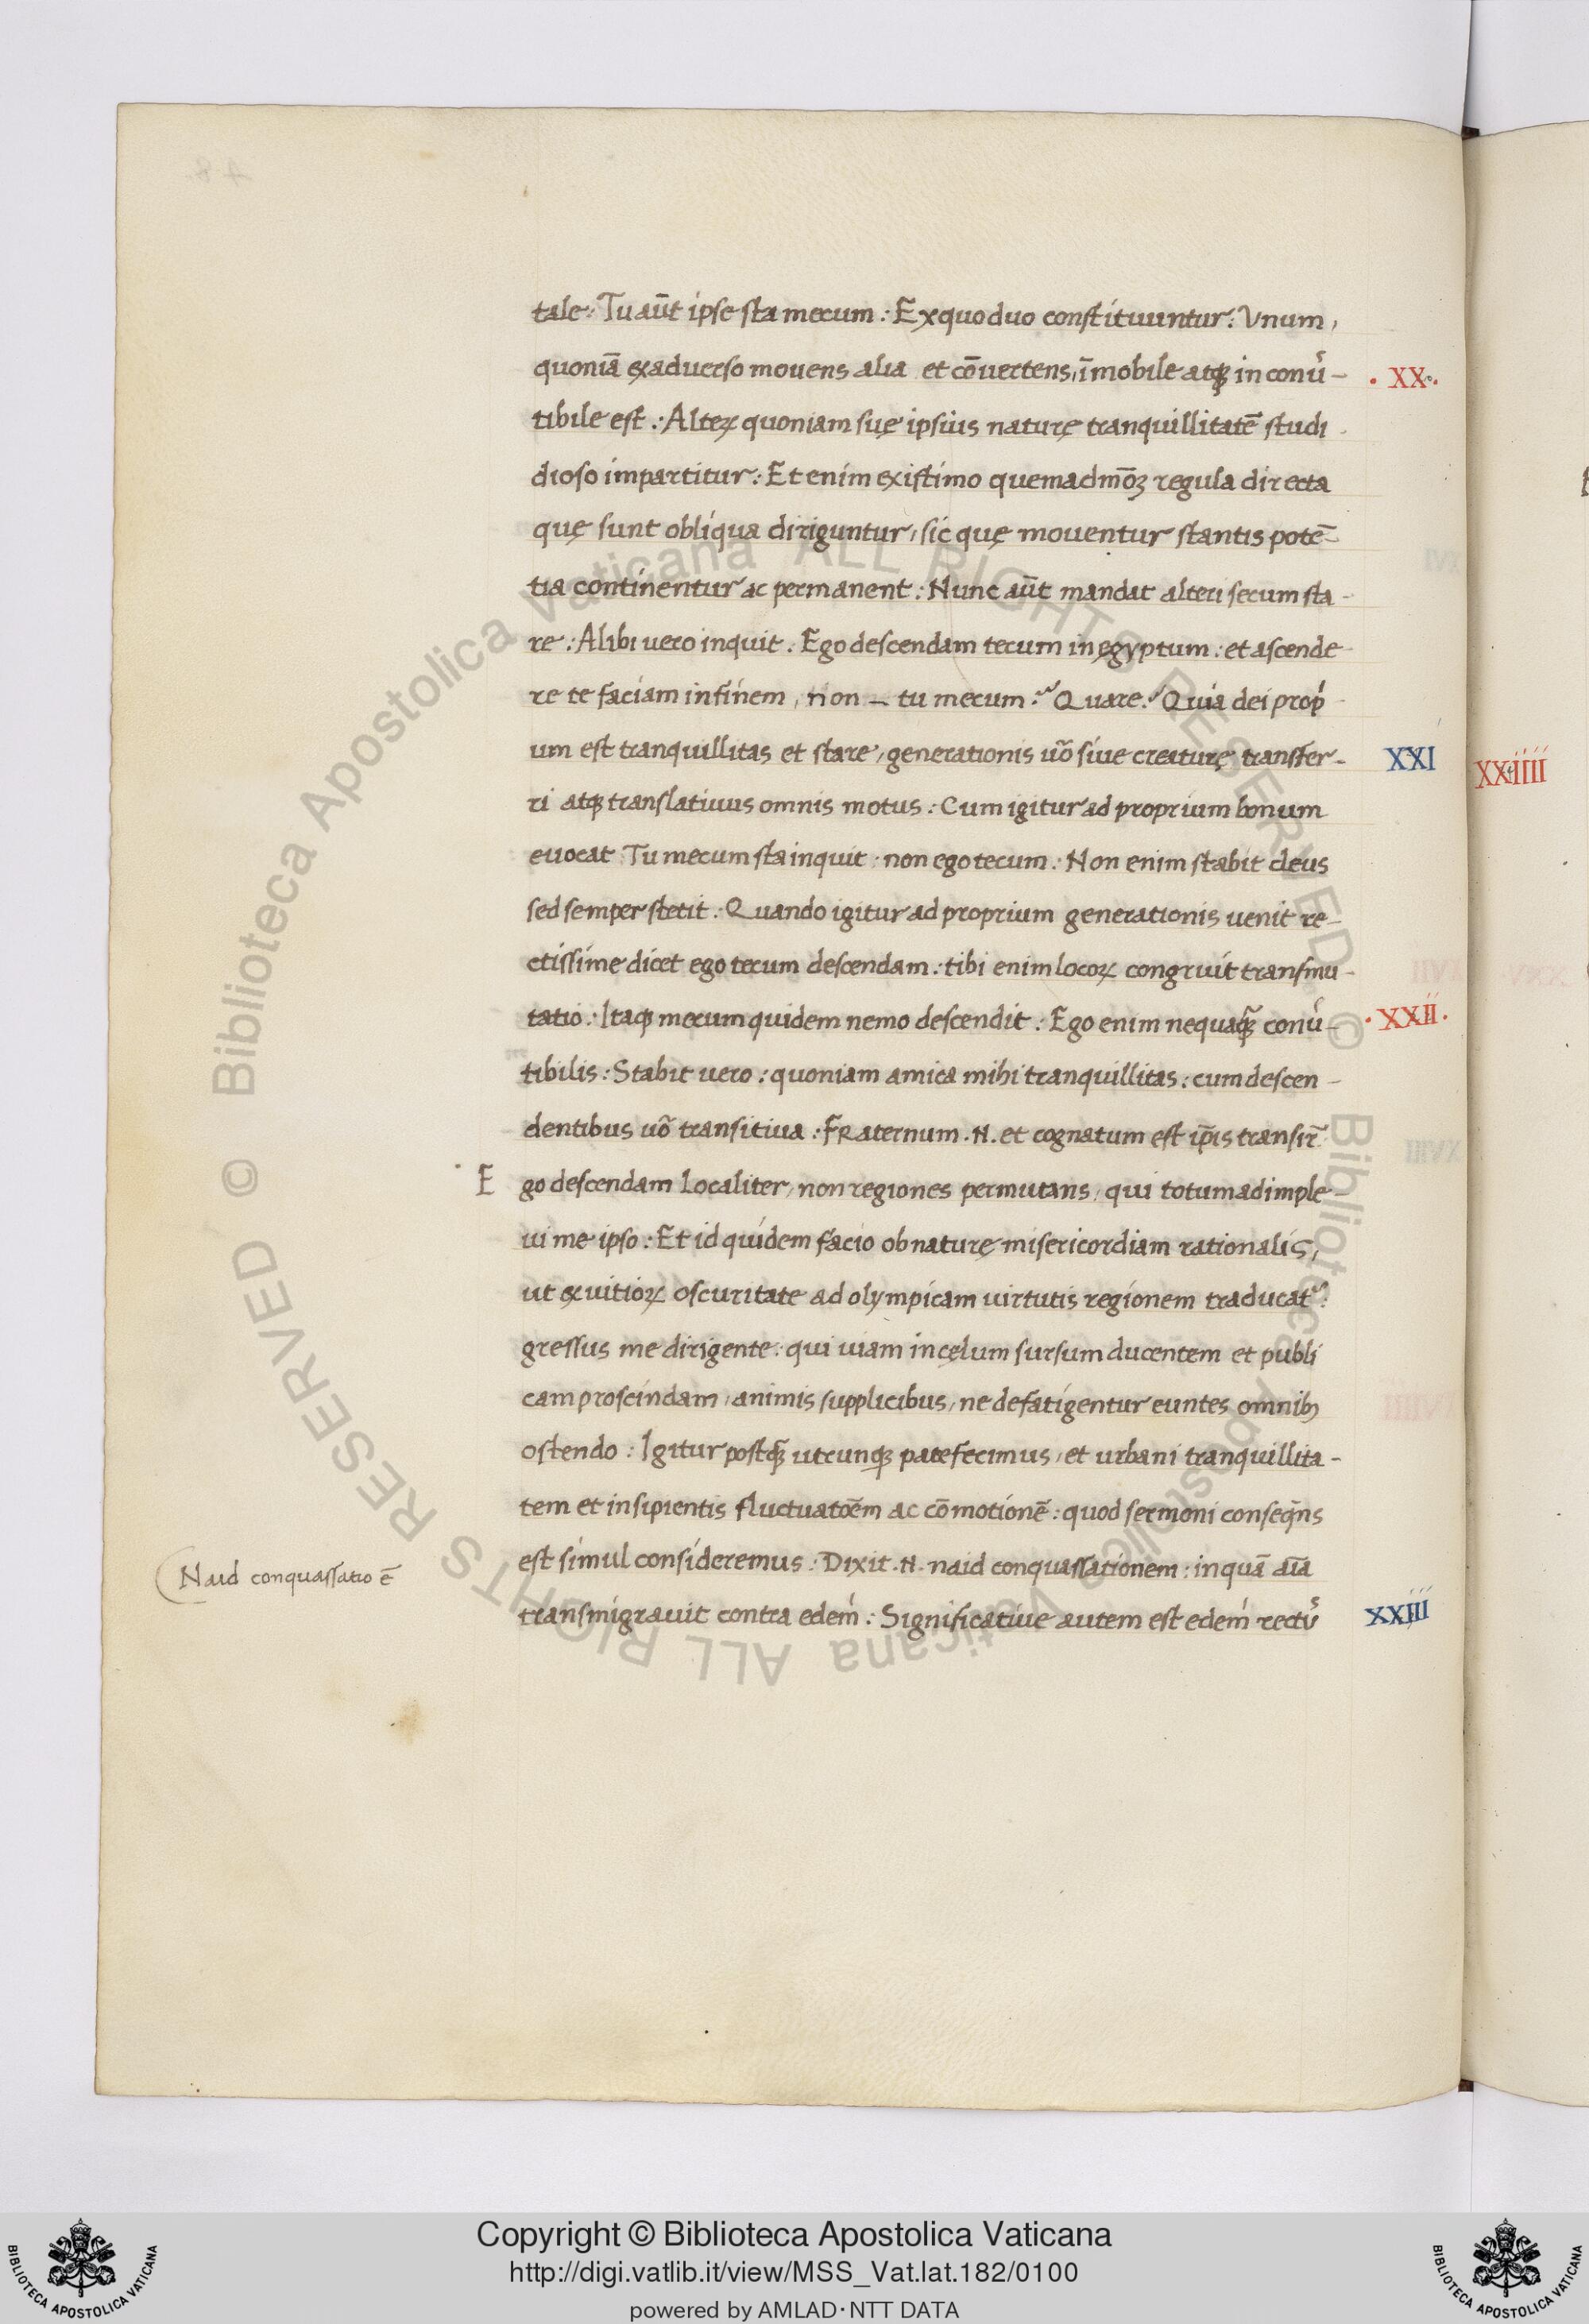 tale: Tu aūt ipse sta mecum: Ex quo duo constituuntur: Vnum,
quoniā ex aduerso mouens alia et cōuertens, īmobile atqꝫ in conu᷑-
tibile est: Alteꝝ quoniam suę ipsius naturę tranquillitatē studi
dioso impartitur: Et enim existimo quemadmōꝫ regula directa
quę sunt obliqua diriguntur, sic quę mouentur stantis potē-
tia continentur ac permanent: Nunc aūt mandat alteri secum sta-
re: Alibi uero inquit: Ego descendam tecum in ęgyptum: et ascende-
re te faciam in finem, non – tu mecum: Quare: Quia dei propi
um est tranquillitas et stare, generationis uō siue creaturę transfer-
ri atqꝫ translatiuus omnis motus: Cum igitur ad proprium bonum
euocat Tu mecum sta inquit: non ego tecum: Non enim stabit deus
sed semper stetit: Quando igitur ad proprium generationis uenit re-
ctissime dicet ego tecum descendam: tibi enim locoꝝ congruit transmu-
tatio: Itaqꝫ mecum quidem nemo descendit: Ego enim nequaq̄ꝫ conu᷑-
tibilis: Stabit uero: quoniam amica mihi tranquillitas: cum descen-
dentibus uō transitiua: Fraternum .N. et cognatum est ip̄is transir̄
Ego descendam localiter, non regiones permutans, qui totum adimple-
ui me ipso: Et id quidem facio ob naturę misericordiam rationalis,
ut ex uitioꝝ oscuritate ad olympicam uirtutis regionem traducat᷑:
gressus me dirigente: qui uiam in cęlum sursum ducentem et publi
cam proscindam, animis supplicibus, ne defatigentur euntes omnibꝫ
ostendo: Igitur postq̄ꝫ utcunqꝫ patefecimus, et urbani tranquillita-
tem et insipientis fluctuatōem ac cōmotionē: quod sermoni conseq̄ns
est simul consideremus: Dixit .N. naid conquassationem: in quā aīa
transmigrauit contra edem: Significatiue autem est edem rectu᷑
Naid conquassatio ē
·XX·
XXI
·XXII·
XXIII
XXIIII